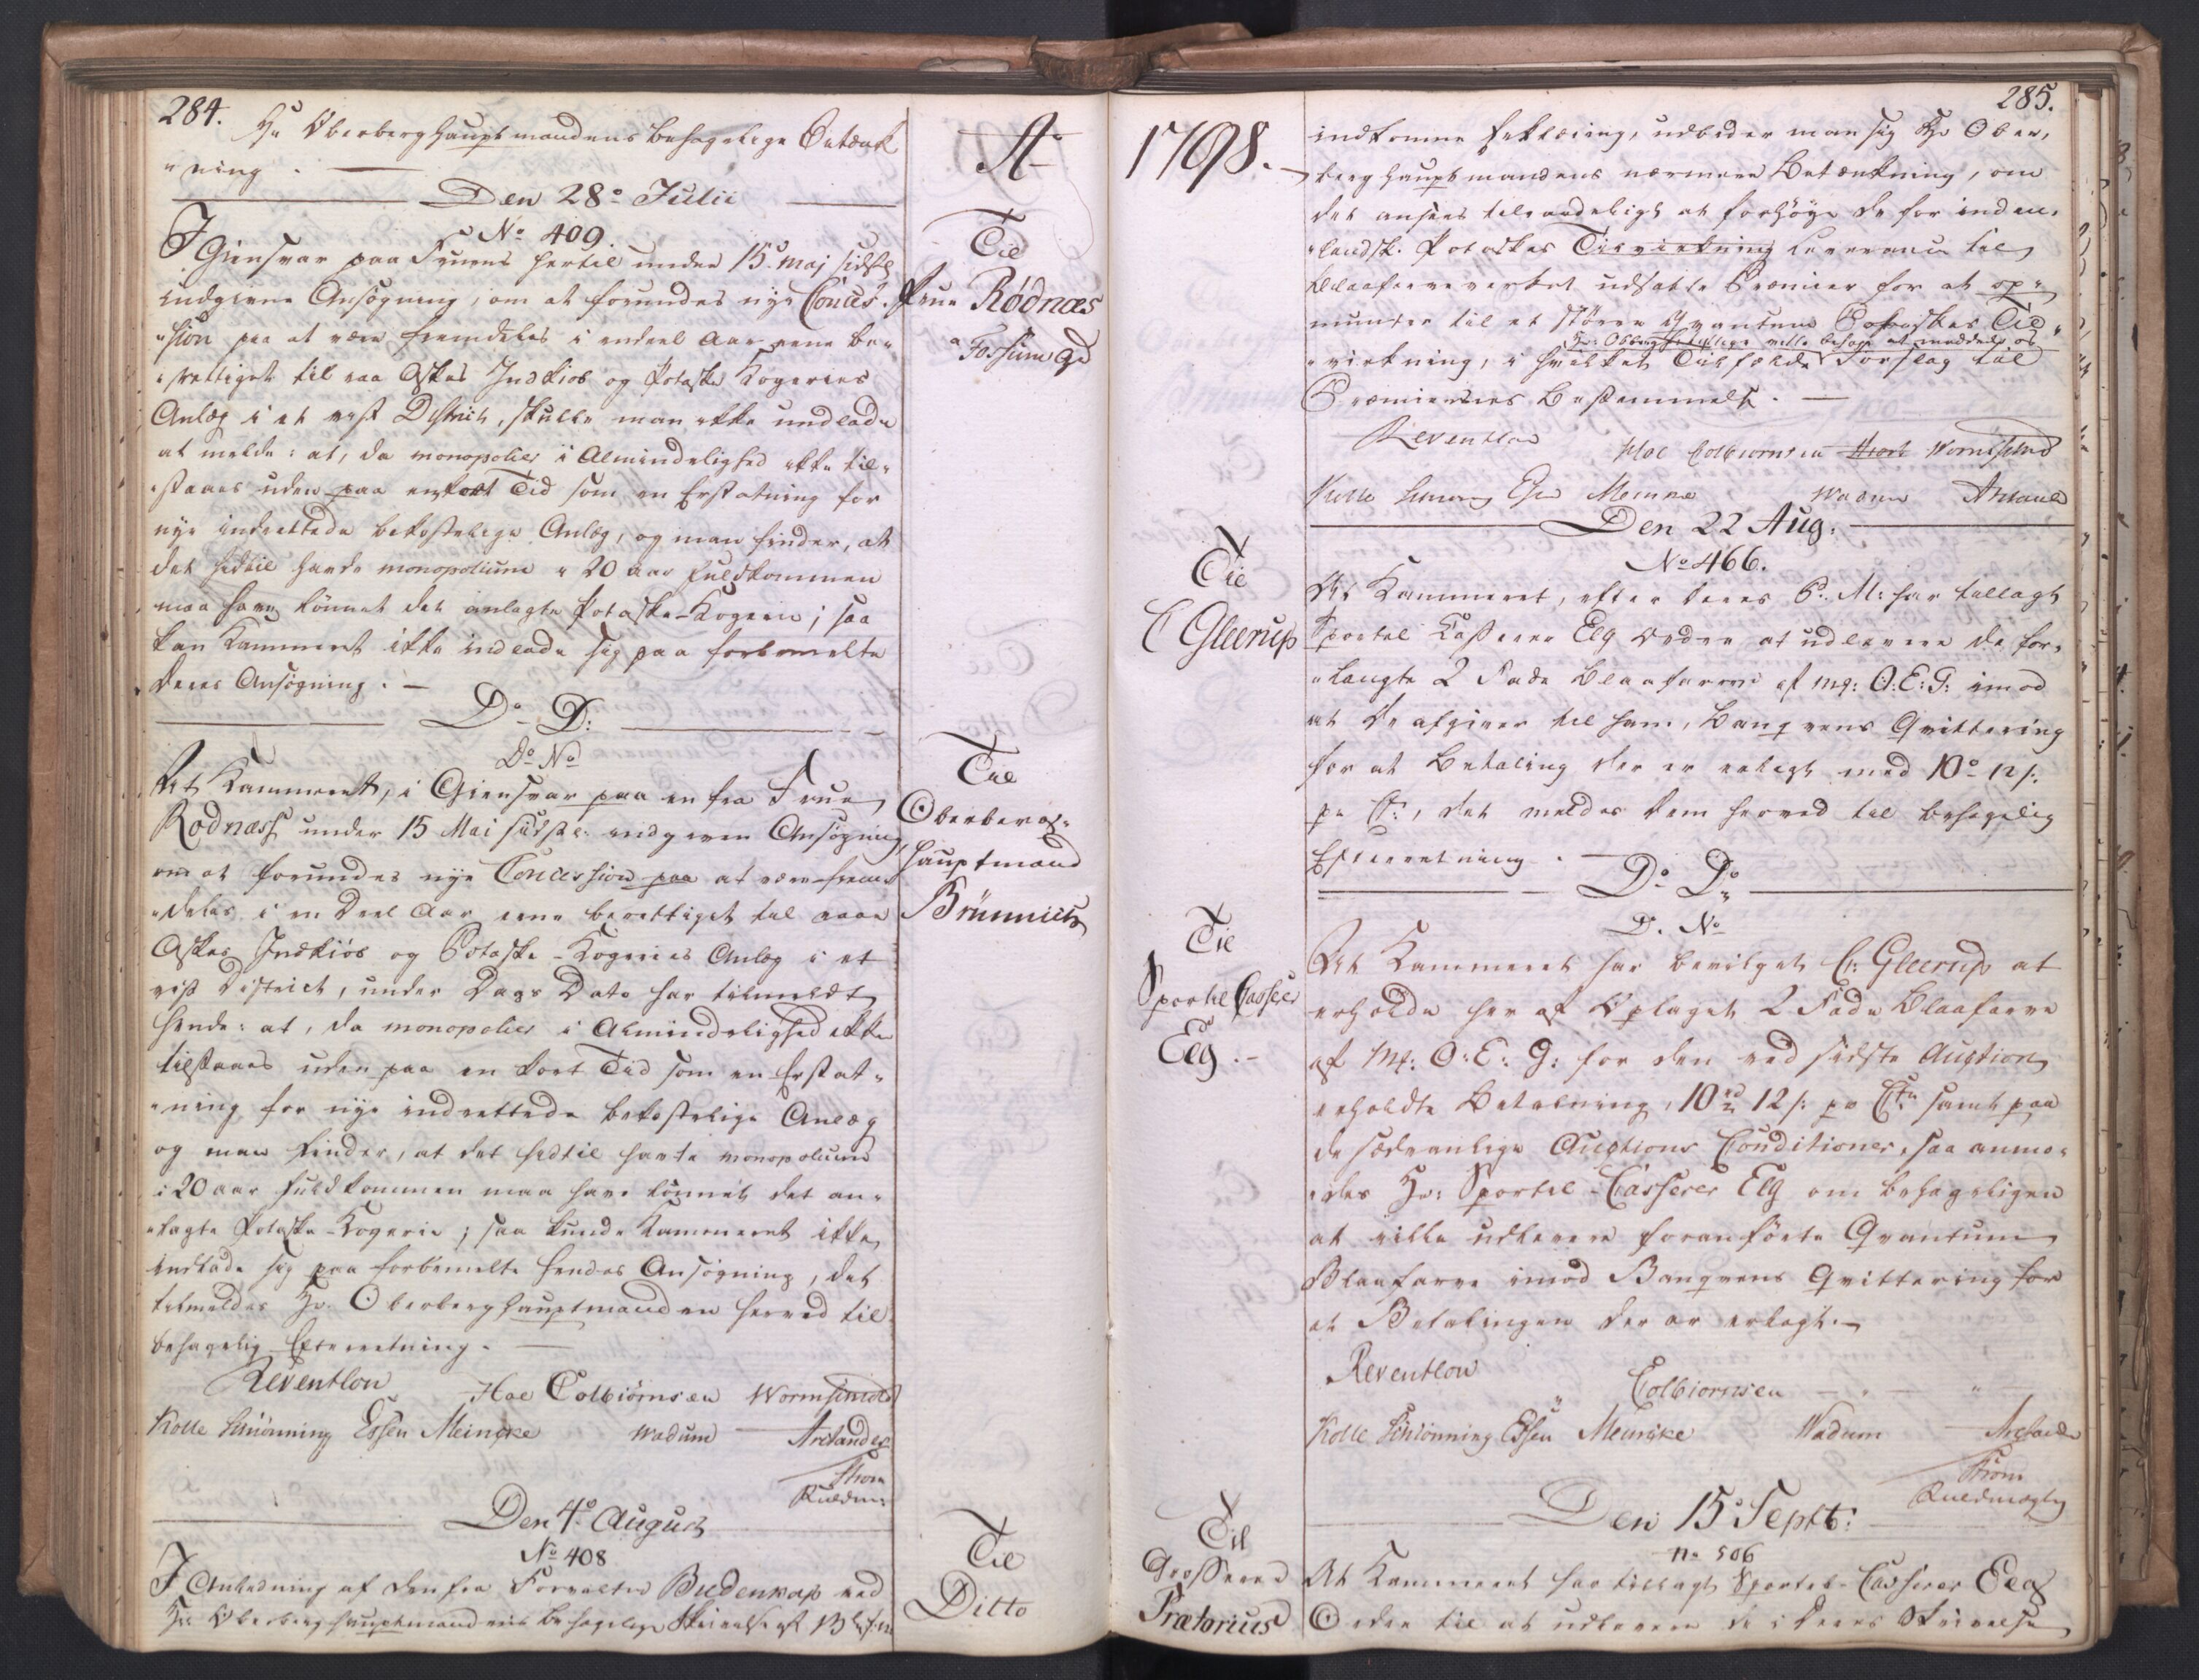 284.
Hr Oberberghauptmandens behagelige Betænk
"ning. —
Den 28de Julii
No 409.
I Giensvar paa Fruens hertil under 15 Maj sidstl
indgivne Ansøgning, om at forundes nye Conces-
"sion paa at være fremdeles i endeel Aar eene be-
"rettiget til raa Askes Indkiøb og Potaske Kogeries
Anlæg i et vist District, skulle man ikke undlade
at melde: at, da monopolier i Almindelighed ikke til-
"staaes uden paa en kort Tid som en Erstatning for
nye indrettede bekostelige Anlæg, og man finder, at
det hidtil havde monopolium i 20 aar fuldkommen
maa have lønnet det anlagte Potaske-Kogerie; saa
kan Kammeret ikke indlade sig paa forbemelte
Deres Ansøgning. —
Do D:
Do No
At Kammeret, i Giensvar paa en fra Frue
Rodnæss under 15 Mai sidstl: indgiven Ansøgning
om at forundes nye Concession paa at være frem-
"deles i en Deel Aar eene berettiget til raae
Askes Indkiøb og Potaske-Kogeries Anlæg i et
vist District, under Dags Dato har tilmeldt
hende: at, da monopolier i Almindelighed ikke
tilstaaes uden paa en kort Tid som en Erstat-
"ning for nye indrettede bekostelige Anlæg
og man finder, at det hidtil havte monopolium
i 20 aar fuldkommen maa have lønnet det an-
"lagte Potaske-Kogerie; saa kunde Kammeret ikke
indlade sig paa forbemelte hendes Ansøgning, det
tilmeldes Hr. Oberberghauptmanden herved til
behagelig Efterretning. —
Reventlou Hoe Colbiørnsen Wormskiold
Kolle Schiønning Essen Meincke Wadum Arctander
Thom
Ruldm:
Den 4de August
No 408
I Anledning af den fra Forvalter Budenrap ved
Hr: Oberberghauptmandens behagelige Skrivelse af 13
A
Til
Frue Rødnæs
Fossum Gd
Til
Oberberg-
hauptmand
Brünnich
Til
Ditto
1798.
285.
indkomne Erklæring, udbeder man sig Hr Ober-
berghauptmandens nærmere Betænkning, om
det ansees tilraadeligt at forhøye de for inden-
"landsk Potaskes Tilvirkning Leverance til
Blaafarveverket udsatte Præmier for at op-
muntre til et større Qvantum Potaskes Til-
Hr: Obberghptm: ville behage at meddele os
"virkning, i hvilket Tilfælde Forslag til
Præmiernes Bestemmelse. —
Reventlou Hoe Colbiørnsen Hiort Wormskiold
Kolle Essen Meincke Wadum Arctander
Den 22 Aug:
No 466.
Til
C Gleerup
At Kammeret, efter Deres P. M: har tillagt
Sportel Casserer Elg Ordre at udlevere de for-
"langte 2 Fade Blaafarve af Mg: O:E:G: imod
at De afgiver til ham, Banqvens Qvittering
for at Betaling der er erlagt med 10 rd 12 s:
pr Ct:, det meldes Dem herved til behagelig
Efterretning. —
Do Do
D. No
Til
Sportel Casserer
Elg. —
At Kammeret har bevilget C: Gleerup at
erholde her af Oplaget 2 Fade Blaafarve
af Mg: O:E:G: for den ved sidste Auction
erholdte Betalning, 10 rd 12 s: pr Ctn samt paa
de sædvanlige Auctions Conditioner, saa anmo-
"des Hr: Sportel-Casserer Elg om behageligen
at ville udlevere foranførte Qvantum
Blaafarve imod Banqvens Qvittering for
at Betalingen der er erlagt. —
Reventlou Colbiornsen
Kolle Schiønning Essen Meincke Wadum Arctander
Thom
Ruldmægtig
Den 15 Septb:
no 506
Til
Grosserer
Prætorius
At Kammeret har tillagt Sportel-Casserer Elg
Ordre til at udlevere de i Deres Skrivelse